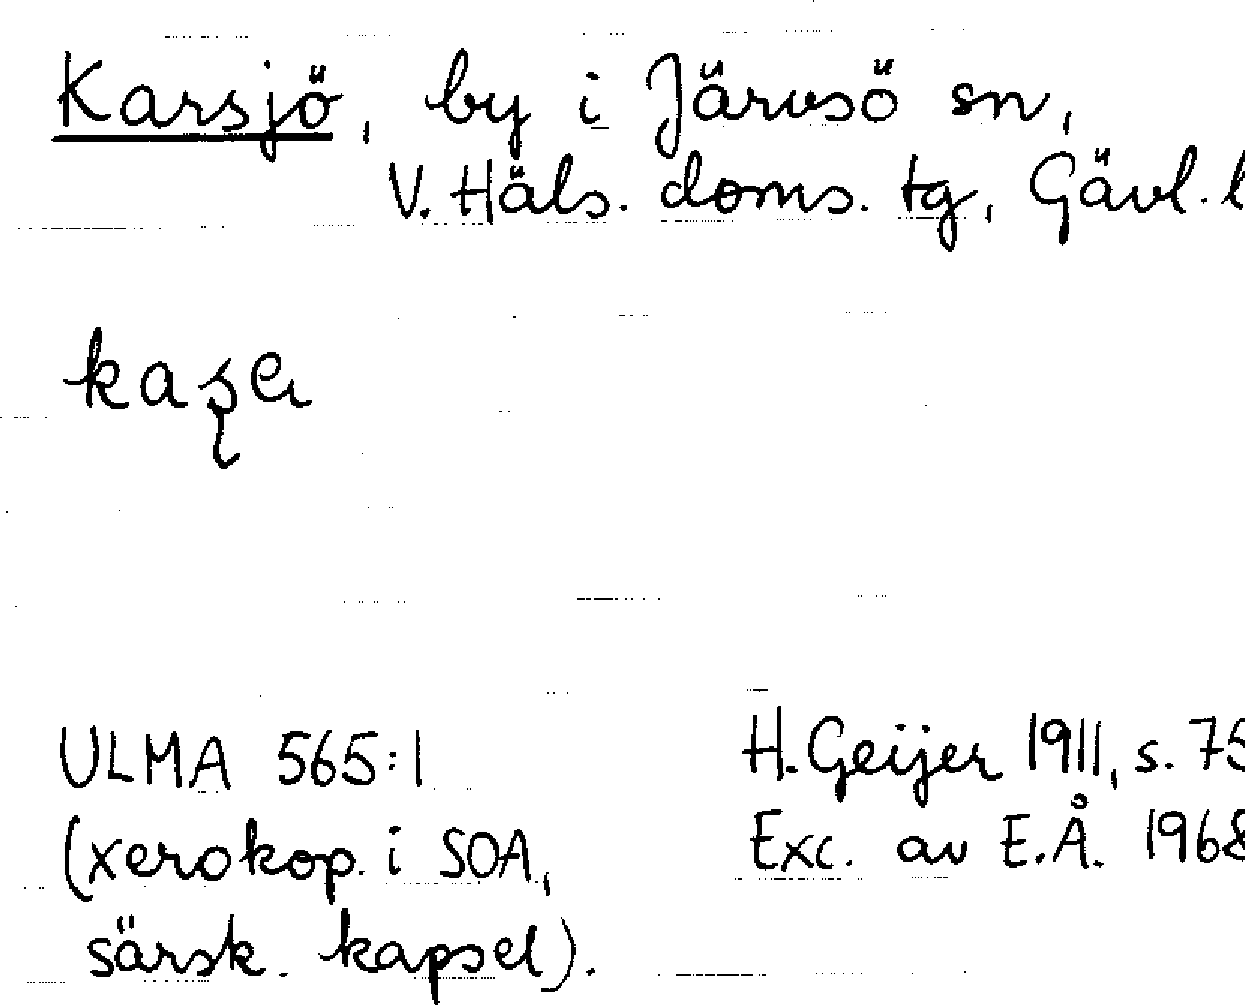 Karsjö, by i Järvsö sn,
V. Häls. doms. tg, Gävl. l
ULMA 565:1
H. Geijer 1911, s. 75
(xerokop. i SOA,
Exc. av E.Å. 1968
särsk. kapsel).